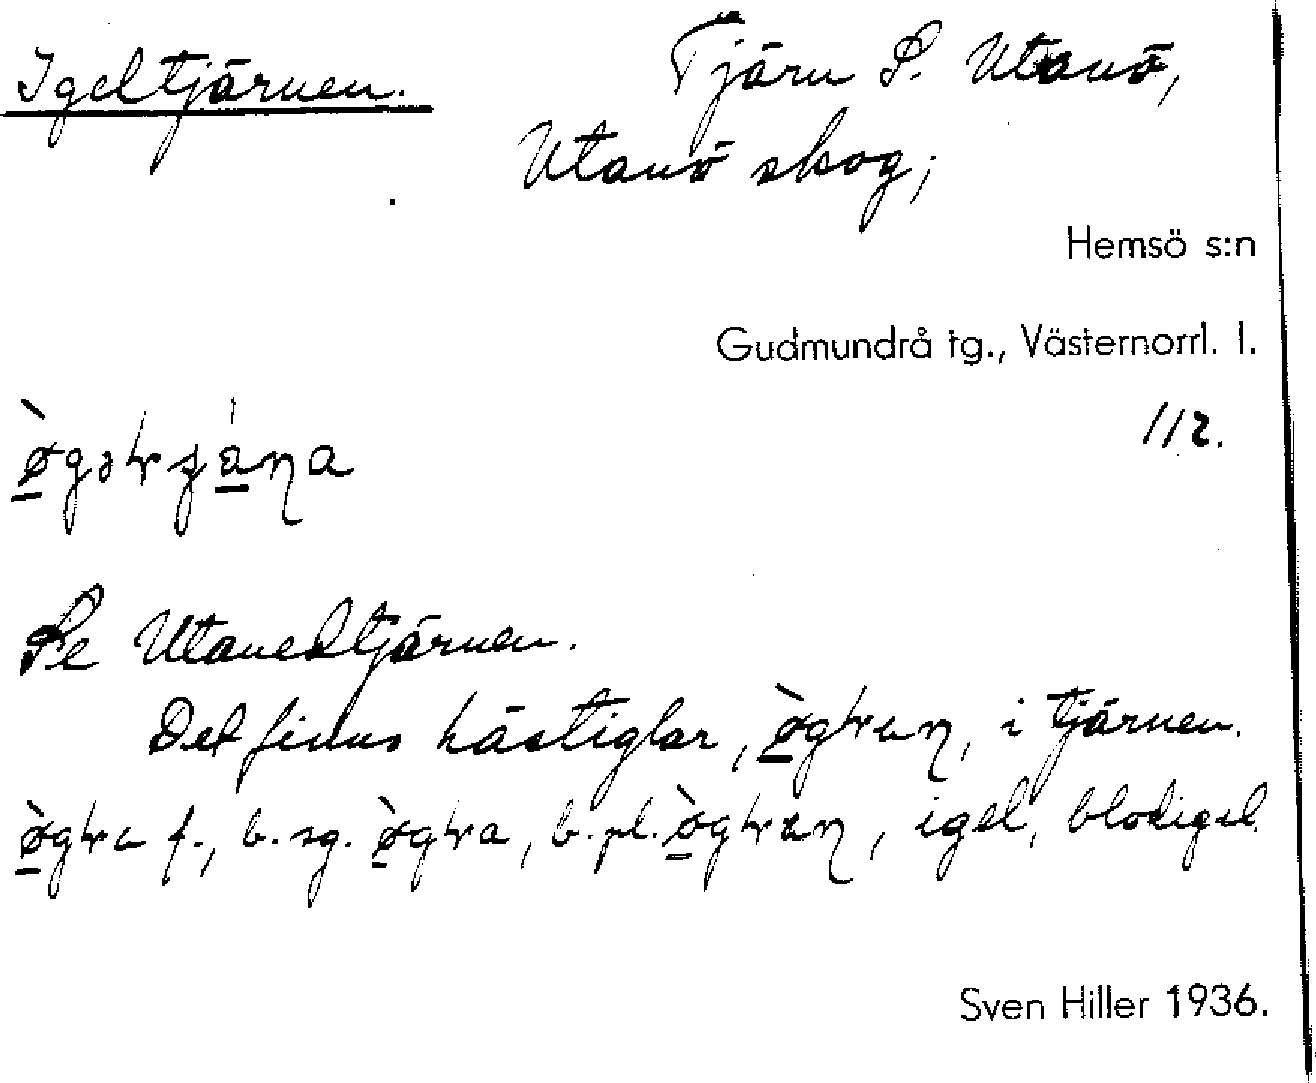 Igeltjärnen. Tjärn S. Utanö,
Utanö skog;
Hemsö s:n
Gudmundrå tg., Västernorrl. l.
112.
Se Utanedtjärnen.
Det finns hästiglar, i tjärnen.
f., b. sg. , b. pl. , igel, blodigel.
Sven Hiller 1936.